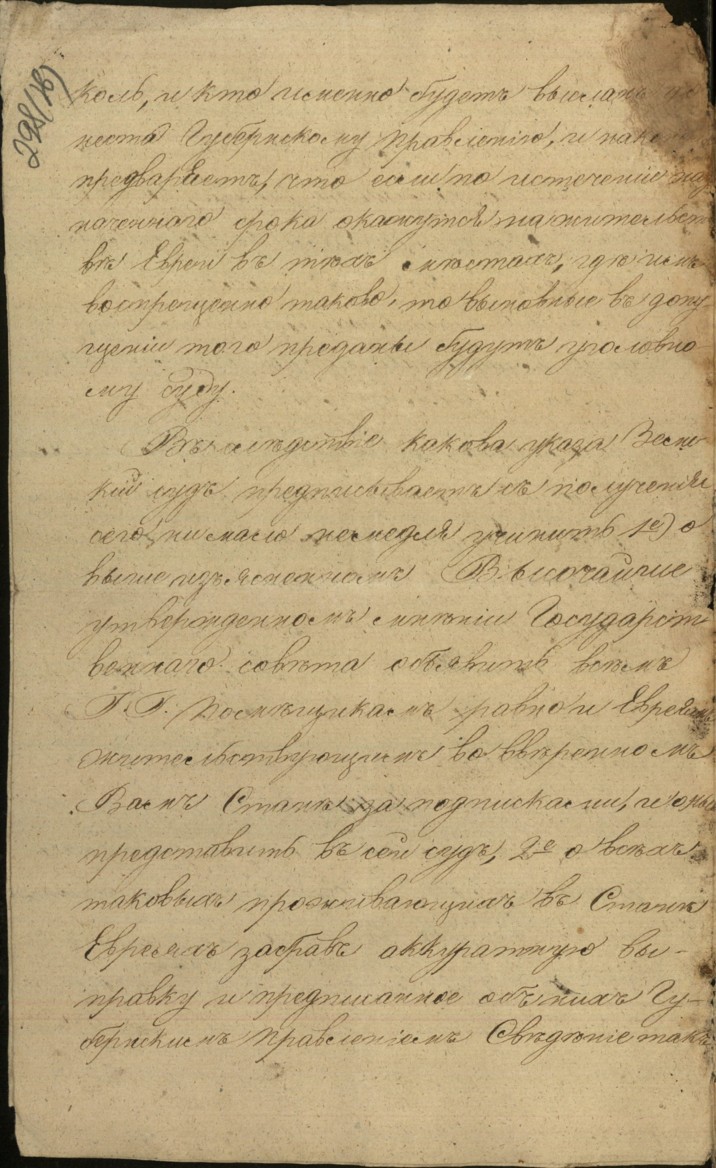 298(18)
коль, и кто именно будетъ высланъ до
нести Губернскому правленію, и
предваряетъ, что если по истеченіе на
наченнаго срока окажутся на жительст
вѣ Евреи въ тѣхъ мѣстахъ, гдѣ имъ
воспрещенно таково, то виновные въ допу
щеніи того преданы будутъ уголовно
му суду.
Въ слѣдствіе какова указа Земс
кій судъ предписываетъ съ полученія
сего ни мало немедля учинить 1е) о
выше изъясненномъ Высочайше
утвержденномъ мнѣніи Государст
веннаго совѣта объявить всѣмъ
Г.Г. Помѣщикамъ равно и Евреямъ
жительствующимъ во ввѣренномъ
Вамъ Станѣ за подписками, и оныя
представить въ сей судъ, 2е о всѣхъ
таковыхъ проживающихъ въ Станѣ
Евреяхъ забравъ аккуратную вы-
правку и предписанное объ нихъ Гу-
бернскимъ правленіемъ Свѣдѣніе такъ